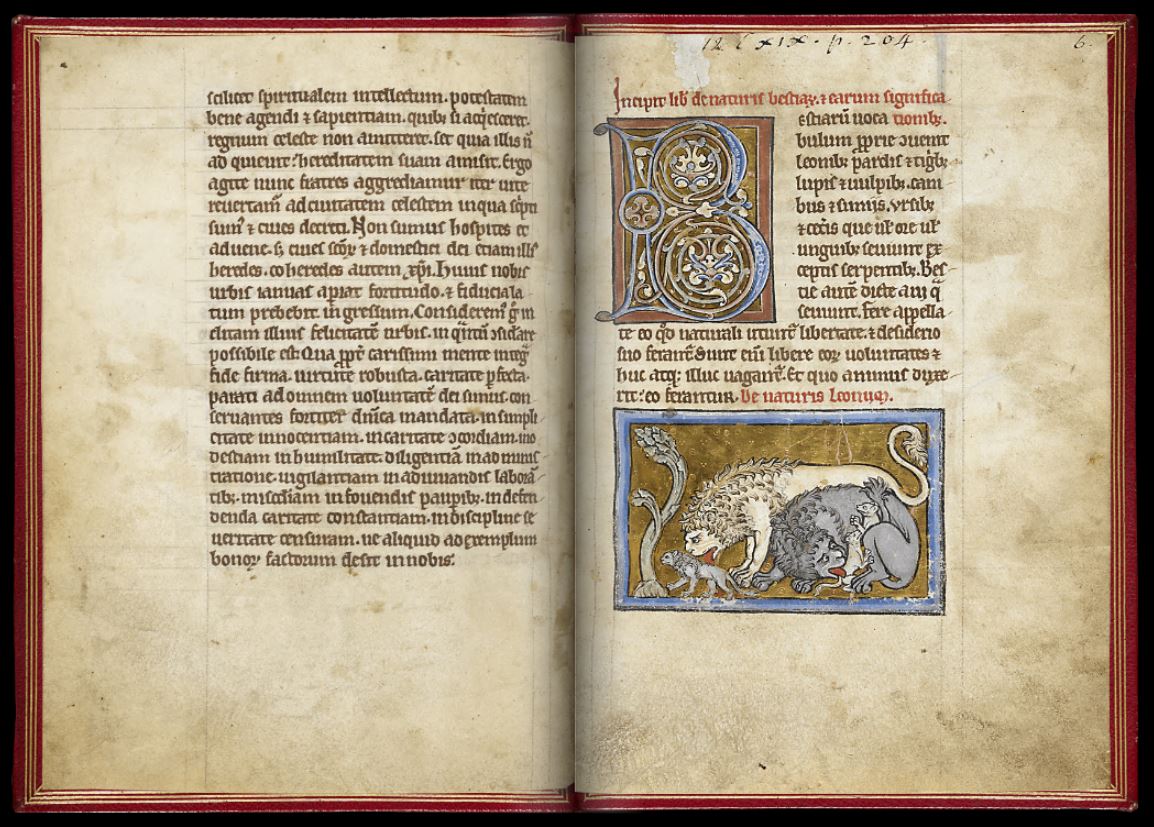 scilicet spiritualem intellectum. potestatem
bene agendi & sapientiam. quib; si acq̇esceret.
regnum celeste non amitteret. set quia illis n̄
ad quieuit: hereditatem suam amisit. Ergo
agite nunc fratres aggrediamur iter uite
reuertam̄ ad ciuitatem celestem in qua sc̄pti
sum᷒ & ciues decreti. Non sumus hospites et
aduene. s; ciues sc̄oꝝ & domestici dei etiam illi᷒
heredes. coheredes autem xp̄i. Huius nobis
urbis ianuas apiat fortitudo. & fiducia la
tum prebebit ingressum. Considerem᷒ g̊ in
clitam illius felicitatē urbis. in q̇ntū ɔsidare
possibile est. Qua ꝓpt̄ carissimi mente integ̃
fide firma. uirtute robusta. caritate ꝑfecta.
parati ad omnem uoluntatē dei simus. con
seruantes fortiter dn̄ica mandata. in simpli
citate innocentiam. in caritate ɔcordiam. mo
destiam in humilitate. diligentiā in adminis
tratione. uigilantiam in adiuuandis laborā
tib;. miscd̄iam in fouendis paupib;. in defen
denda caritate constantiam. in discipline se
ueritate censuram. ne aliquid ad exemplum
bonoꝝ factorum desit in nobis.
12 C xix. p. 204.
6.
Incipit lib̄ de naturis bestiaꝝ. & earum significa
Bestiarū uoca tionib;.
bulum ꝓprie ɔuenit
leonib; pardis & tiġb;
lupis & uulpib;. cani
bus & simijs. vrsib;
& cet̄is que ul̄ ore ul̄
unguib; seuiunt ex
ceptis serpentib;. Bes
tie autē dicte a ui q̄
seuiunt. fere appella
te eo qd̄ naturali utunt᷒ libertate. & desiderio
suo ferant᷒. Sunt eni libere eoꝝ uoluntates &
huc atq; illuc uagant᷒. Et quo animus duxe
rit: eo ferantur. De naturis Leonuꝝ.